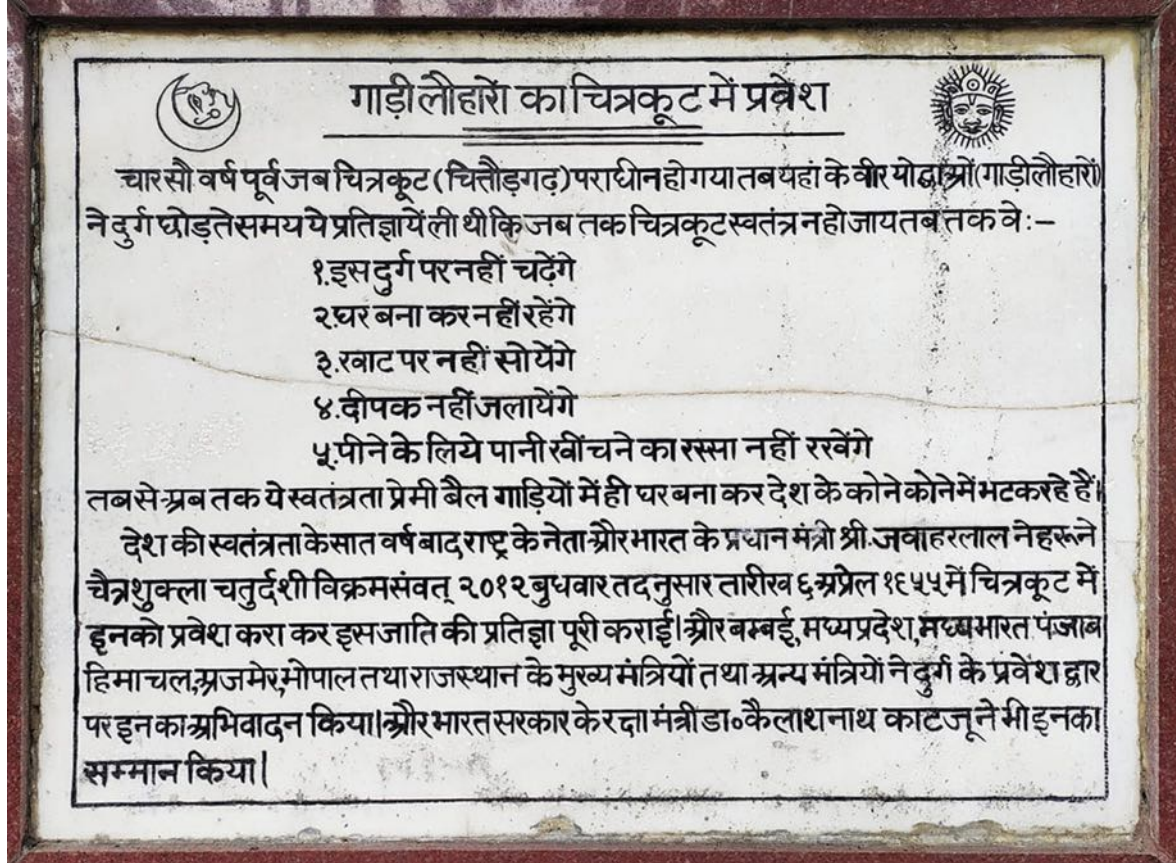 गाड़ी लौहारों का चित्रकूट में प्रवेश
चार सौ वर्ष पूर्व जब चित्रकूट (चितौड़गढ़) पराधीन हो गया तब यहां के वीर योद्धाओं (गाड़ी लौहारों)
ने दुर्ग छोड़ते समय ये प्रतिज्ञायें ली थी कि जब तक चित्रकूट स्वतंत्र न हो जाय तब तक वे :–
१. इस दुर्ग पर नहीं चढ़ेंगे
२. घर बना कर नहीं रहेंगे
३. खाट पर नहीं सोयेंगे
४. दीपक नहीं जलायेंगे
५. पीने के लिये पानी खींचने का रस्सा नहीं रखेंगे
तब से अब तक ये स्वतंत्रता प्रेमी बैल गाड़ियों में ही घर बना कर देश के कोने कोने में भटक रहे हैं।
देश की स्वतंत्रता के सात वर्ष बाद राष्ट्र के नेता और भारत के प्रधान मंत्री श्री. जवाहरलाल नेहरू ने
चैत्र शुक्ला चतुर्दशी विक्रम संवत् २०१२ बुधवार तदनुसार तारीख ६ अप्रेल १९५५ में चित्रकूट में
इनको प्रवेश करा कर इस जाति की प्रतिज्ञा पूरी कराई। और बम्बई, मध्यप्रदेश, मध्यभारत पंजाब
हिमाचल, अजमेर, भोपाल तथा राजस्थान के मुख्य मंत्रियों तथा अन्य मंत्रियों ने दुर्ग के प्रवेश द्वार
पर इनका अभिवादन किया। और भारत सरकार के रक्षा मंत्री डा० कैलाश नाथ काटजू ने भी इनका
सम्मान किया।